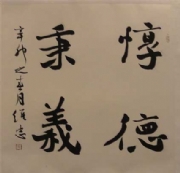 惇德
秉義
辛卯之春月經志